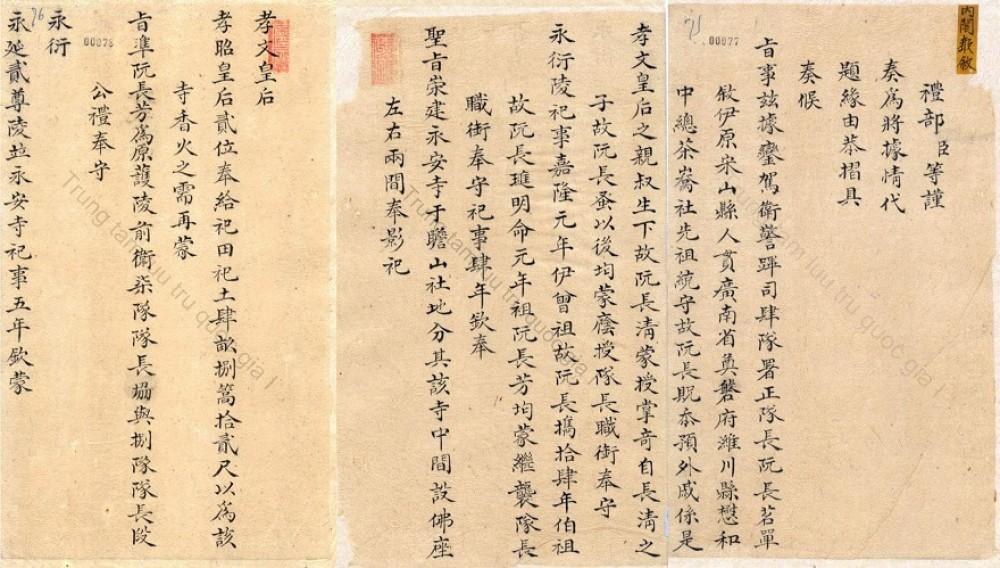 內閣敬敘
禮部臣等謹
奏爲將據情代
題緣由恭摺具
奏候
旨事茲據鑾駕衛警蹕司肆隊署正隊長阮長茗單
敘伊原宋山縣人貫廣南省奠磐府濰川縣懋和
中總茶嶠社先祖統守故阮長貺忝預外戚係是
孝文皇后之親叔生下故阮長清蒙授掌奇自長清之
子故阮長蚤以後均蒙廕授隊長職銜奉守
永衍陵祀事嘉隆元年伊曾祖故阮長攜拾肆年伯祖
故阮長璡明命元年祖阮長芳均蒙繼襲隊長
職銜奉守祀事肆年欽奉
聖旨崇建永安寺于瞻山社地分其該寺中間設佛座
左右兩間奉影祀
孝文皇后
孝昭皇后貳位奉給祀田祀土肆畝捌篙拾貳尺以爲該
寺香火之需再蒙
旨準阮長芳爲原護陵前衛柒隊隊長協與捌隊隊長段
公禮奉守
永衍
永延貳尊陵並永安寺祀事五年欽蒙
75
00077
76
00078
Trung tâm lưu trữ quốc gia I
Trung tâm lưu trữ quốc gia I